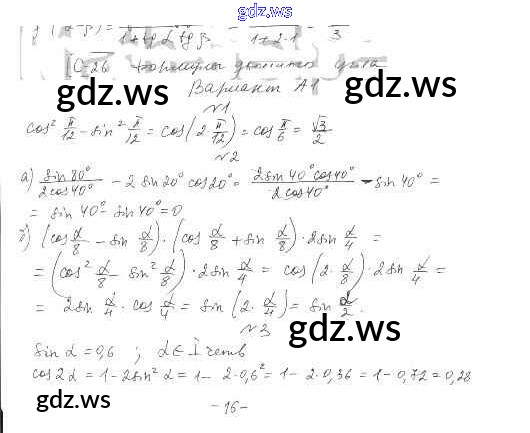 gdz.ws
1+tg α tg β 1+2·1 3
С-26 формулы двойного угла
gdz.ws gdz.ws
Вариант А1
№1
cos² π/12 - sin² π/12 = cos(2 π/12) = cos π/6 = √3/2
№2
а) sin 80°/2cos 40° - 2 sin 20° cos 20° = 2sin 40° cos 40°/2 cos 40° - sin 40° =
= sin 40° - sin 40° = 0
б) (cos α/8 - sin α/8) · (cos α/8 + sin α/8) · 2sin α/4 =
= (cos² α/8 - sin² α/8) · 2sin α/4 = cos (2 · α/8) · 2sin α/4 =
= 2sin α/4 · cos α/4 = sin (2 · α/4) = sin α/2.
gdz.ws
№3
sin α = 0,6 ; α ∈ I четв
cos 2α = 1 - 2sin² α = 1 - 2·0,6² = 1 - 2·0,36 = 1 - 0,72 = 0,28
gdz.ws
- 16 -